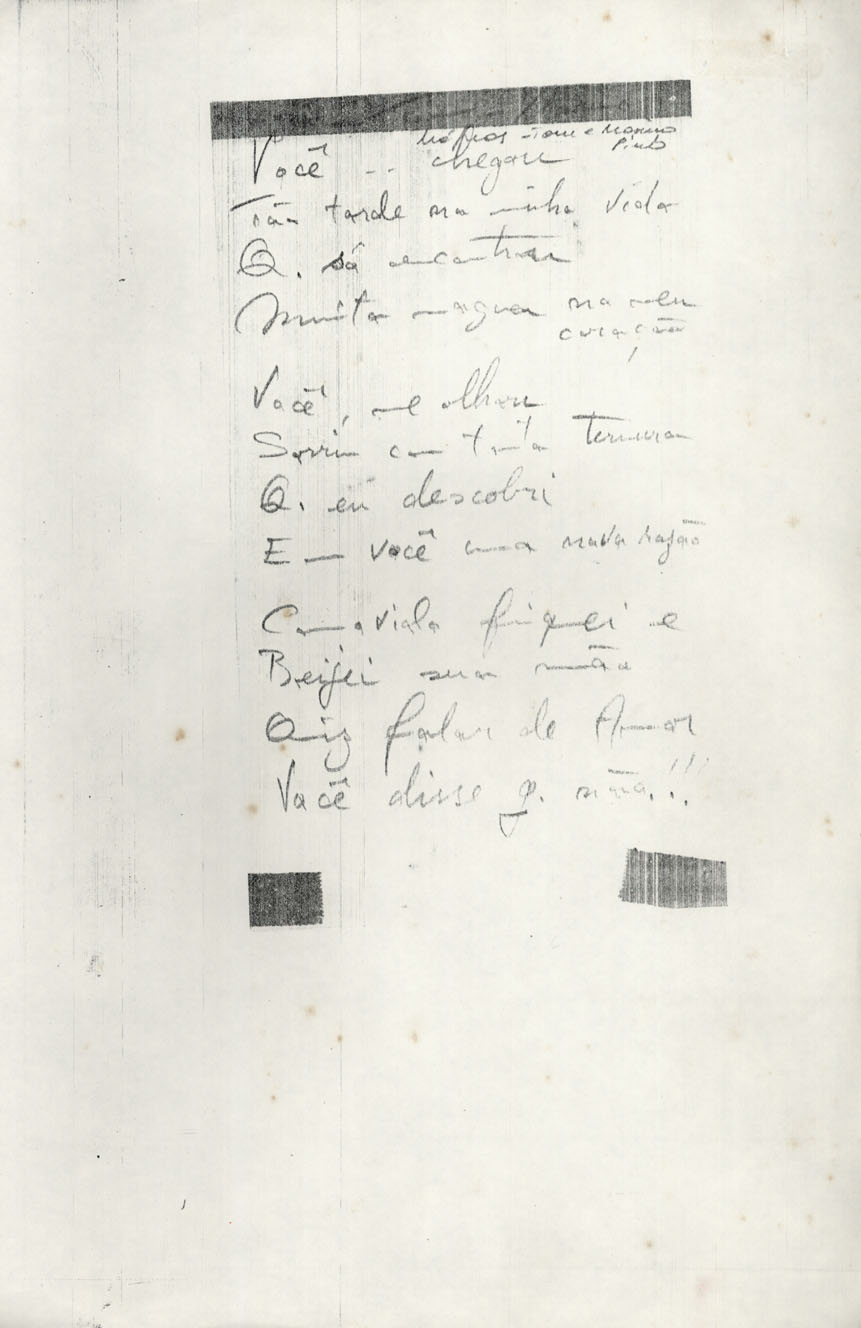 Marino
Pinto
Você -- chegou
Tão tarde na minha vida
Q. só encontrou
Muita magua no meu
coração
Você, me olhou
Sorriu com tanta ternura
Q. eu descobri
Em você uma nova razão
Comovida fiquei e
Beijei sua mão
Quiz falar de Amor
Você disse q. não!!!